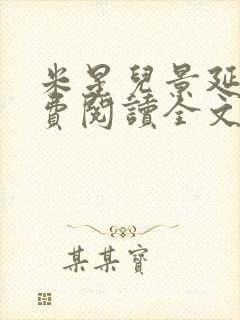 米星兒景延
費閱讀全文
某某寶